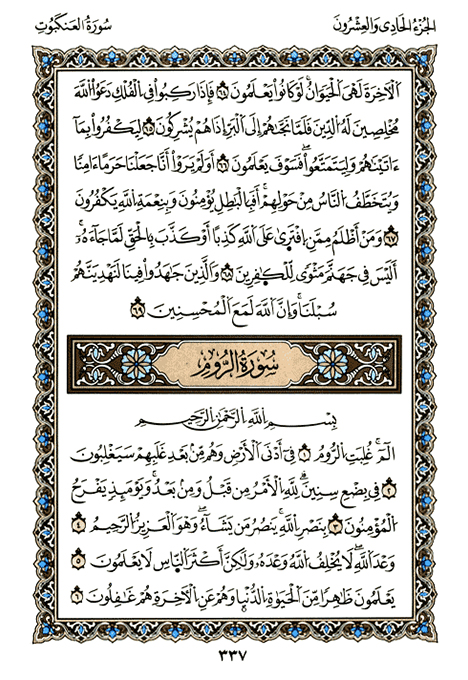 الجزء الحادي والعشرون سورة العنكبوت
الْآخِرَةَ لَهِيَ الْحَيَوَانُ لَوْ كَانُوا يَعْلَمُونَ ٦٤ فَإِذَا رَكِبُوا فِي الْفُلْكِ دَعَوُا اللَّهَ
مُخْلِصِينَ لَهُ الدِّينَ فَلَمَّا نَجَّىٰهُمْ إِلَى الْبَرِّ إِذَا هُمْ يُشْرِكُونَ ٦٥ لِيَكْفُرُوا بِمَا
ءَاتَيْنَٰهُمْ وَلِيَتَمَتَّعُوا فَسَوْفَ يَعْلَمُونَ ٦٦ أَوَلَمْ يَرَوْا أَنَّا جَعَلْنَا حَرَمًا ءَامِنًا
وَيُتَخَطَّفُ النَّاسُ مِنْ حَوْلِهِمْ أَفَبِالْبَٰطِلِ يُؤْمِنُونَ وَبِنِعْمَةِ اللَّهِ يَكْفُرُونَ
٦٧ وَمَنْ أَظْلَمُ مِمَّنِ افْتَرَىٰ عَلَى اللَّهِ كَذِبًا أَوْ كَذَّبَ بِالْحَقِّ لَمَّا جَاءَهُ
أَلَيْسَ فِي جَهَنَّمَ مَثْوًى لِلْكَٰفِرِينَ ٦٨ وَالَّذِينَ جَٰهَدُوا فِينَا لَنَهْدِيَنَّهُمْ
سُبُلَنَا وَإِنَّ اللَّهَ لَمَعَ الْمُحْسِنِينَ ٦٩
سُورَةُ الرُّومِ
بِسْمِ اللَّهِ الرَّحْمَٰنِ الرَّحِيمِ
الٓمٓ غُلِبَتِ الرُّومُ ١ فِي أَدْنَى الْأَرْضِ وَهُمْ مِنْ بَعْدِ غَلَبِهِمْ سَيَغْلِبُونَ
٢ فِي بِضْعِ سِنِينَ لِلَّهِ الْأَمْرُ مِنْ قَبْلُ وَمِنْ بَعْدُ وَيَوْمَئِذٍ يَفْرَحُ
الْمُؤْمِنُونَ ٣ بِنَصْرِ اللَّهِ يَنْصُرُ مَنْ يَشَاءُ وَهُوَ الْعَزِيزُ الرَّحِيمُ ٤
وَعْدَ اللَّهِ لَا يُخْلِفُ اللَّهُ وَعْدَهُ وَلَٰكِنَّ أَكْثَرَ النَّاسِ لَا يَعْلَمُونَ ٥
يَعْلَمُونَ ظَٰهِرًا مِنَ الْحَيَوٰةِ الدُّنْيَا وَهُمْ عَنِ الْآخِرَةِ هُمْ غَٰفِلُونَ ٦
٣٣٧